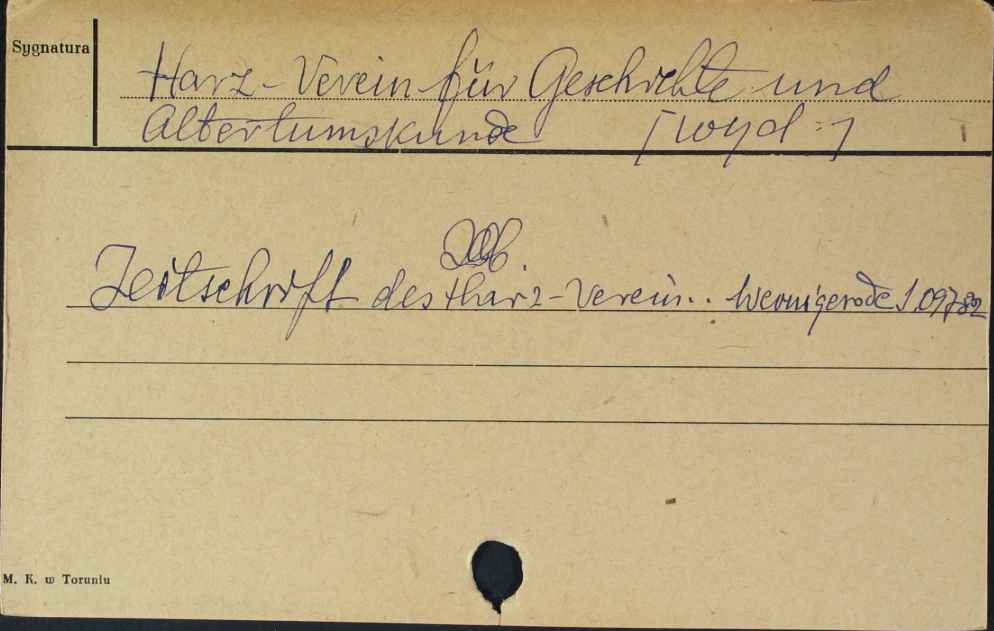 Sygnatura
Harz-Verein für Geschichte und
Altertumskunde [wyd:]
Zob.
Zeitschrift des Harz-Verein.. Wernigerode 109782
M. K. w Toruniu